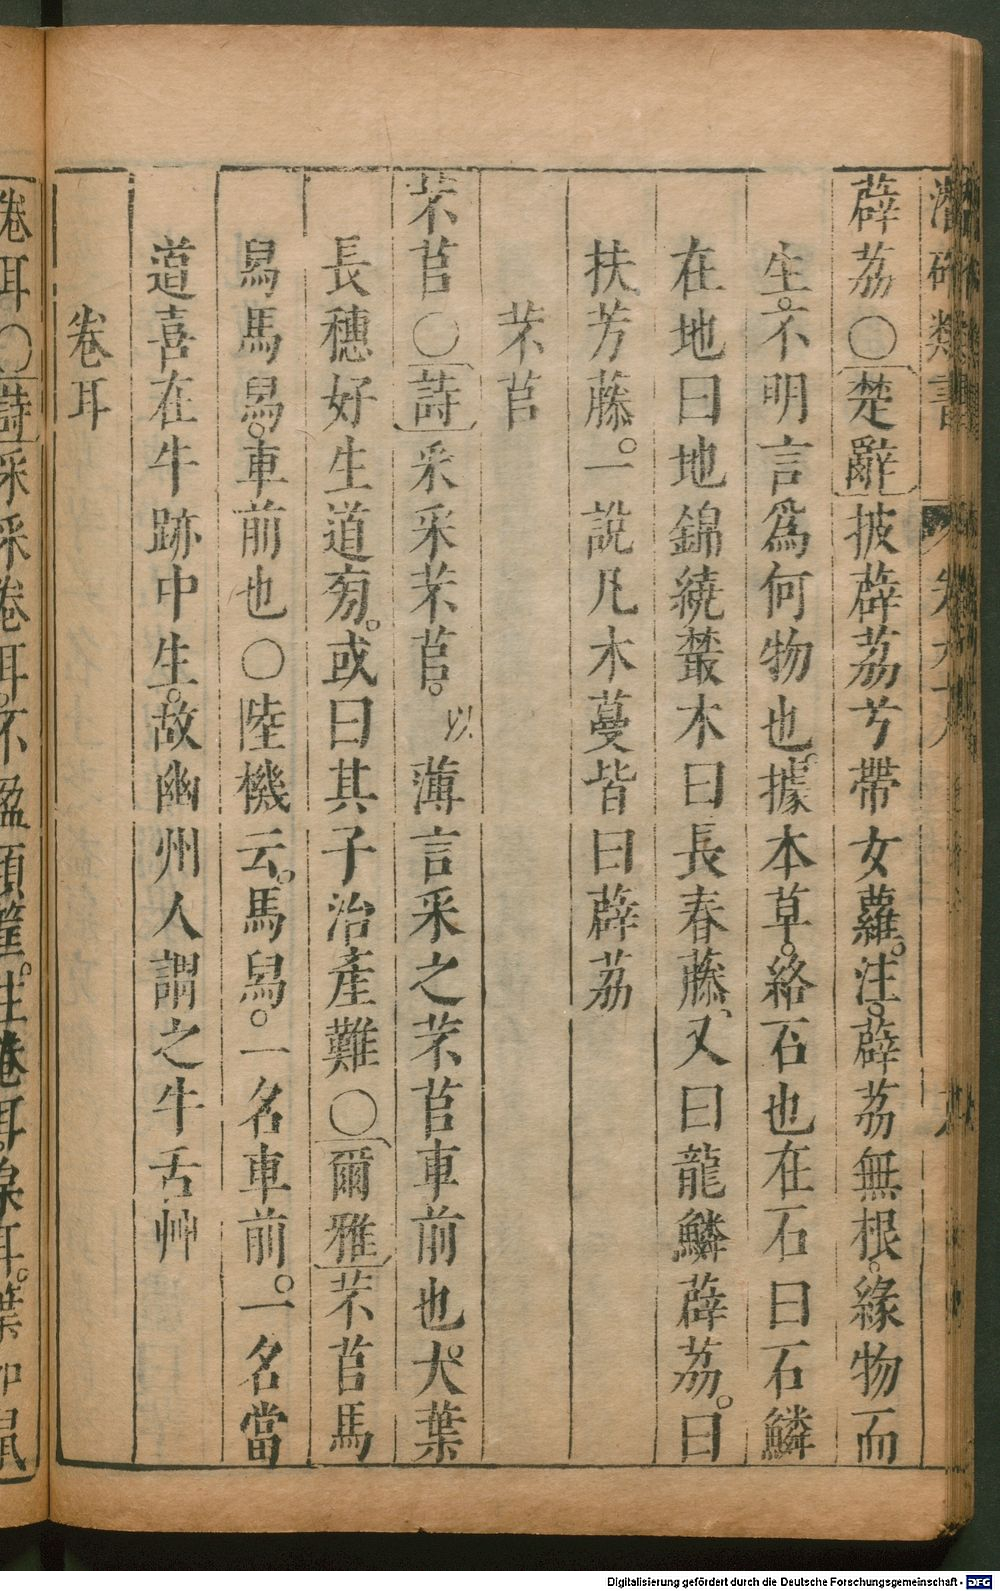 潛確類書
薜荔〇楚辭披薜荔兮帶女蘿。注。薜荔無根。緣物而
生。不明言爲何物也。據本草。絡石也在石曰石鱗
在地曰地錦繞藂木曰長春藤、又曰龍鱗薜荔。曰
扶芳藤。一說凡木蔓皆曰薜荔
芣苢
芣苢〇詩采采芣苢。薄言采之芣苢車前也。大葉
長穗好生道旁。或曰其子治產難〇爾雅芣苢馬
舄馬舄。車前也〇陸機云。馬舄。一名車前。一名當
道喜在牛跡中生。故幽州人謂之牛舌艸
卷耳
卷耳〇詩采采卷耳。不盈頃筐。注卷耳枲耳。葉如鼠
Digitalisierung gefördert durch die Deutsche Forschungsgemeinschaft - DFG